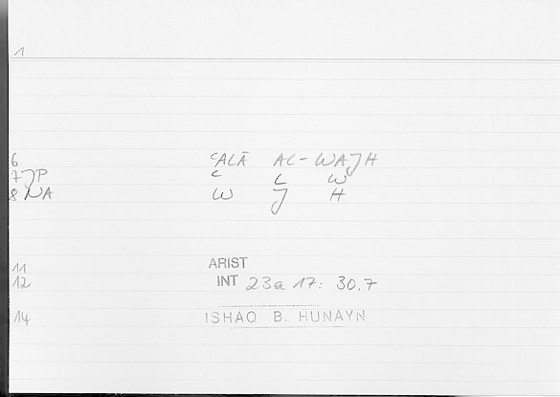 1
6 ʿALĀ AL-WAJH
7 JP ʿ L W
8 NA W J H
11 ARIST
12 INT 23a 17: 30.7
14 ISHAO B. HUNAYN